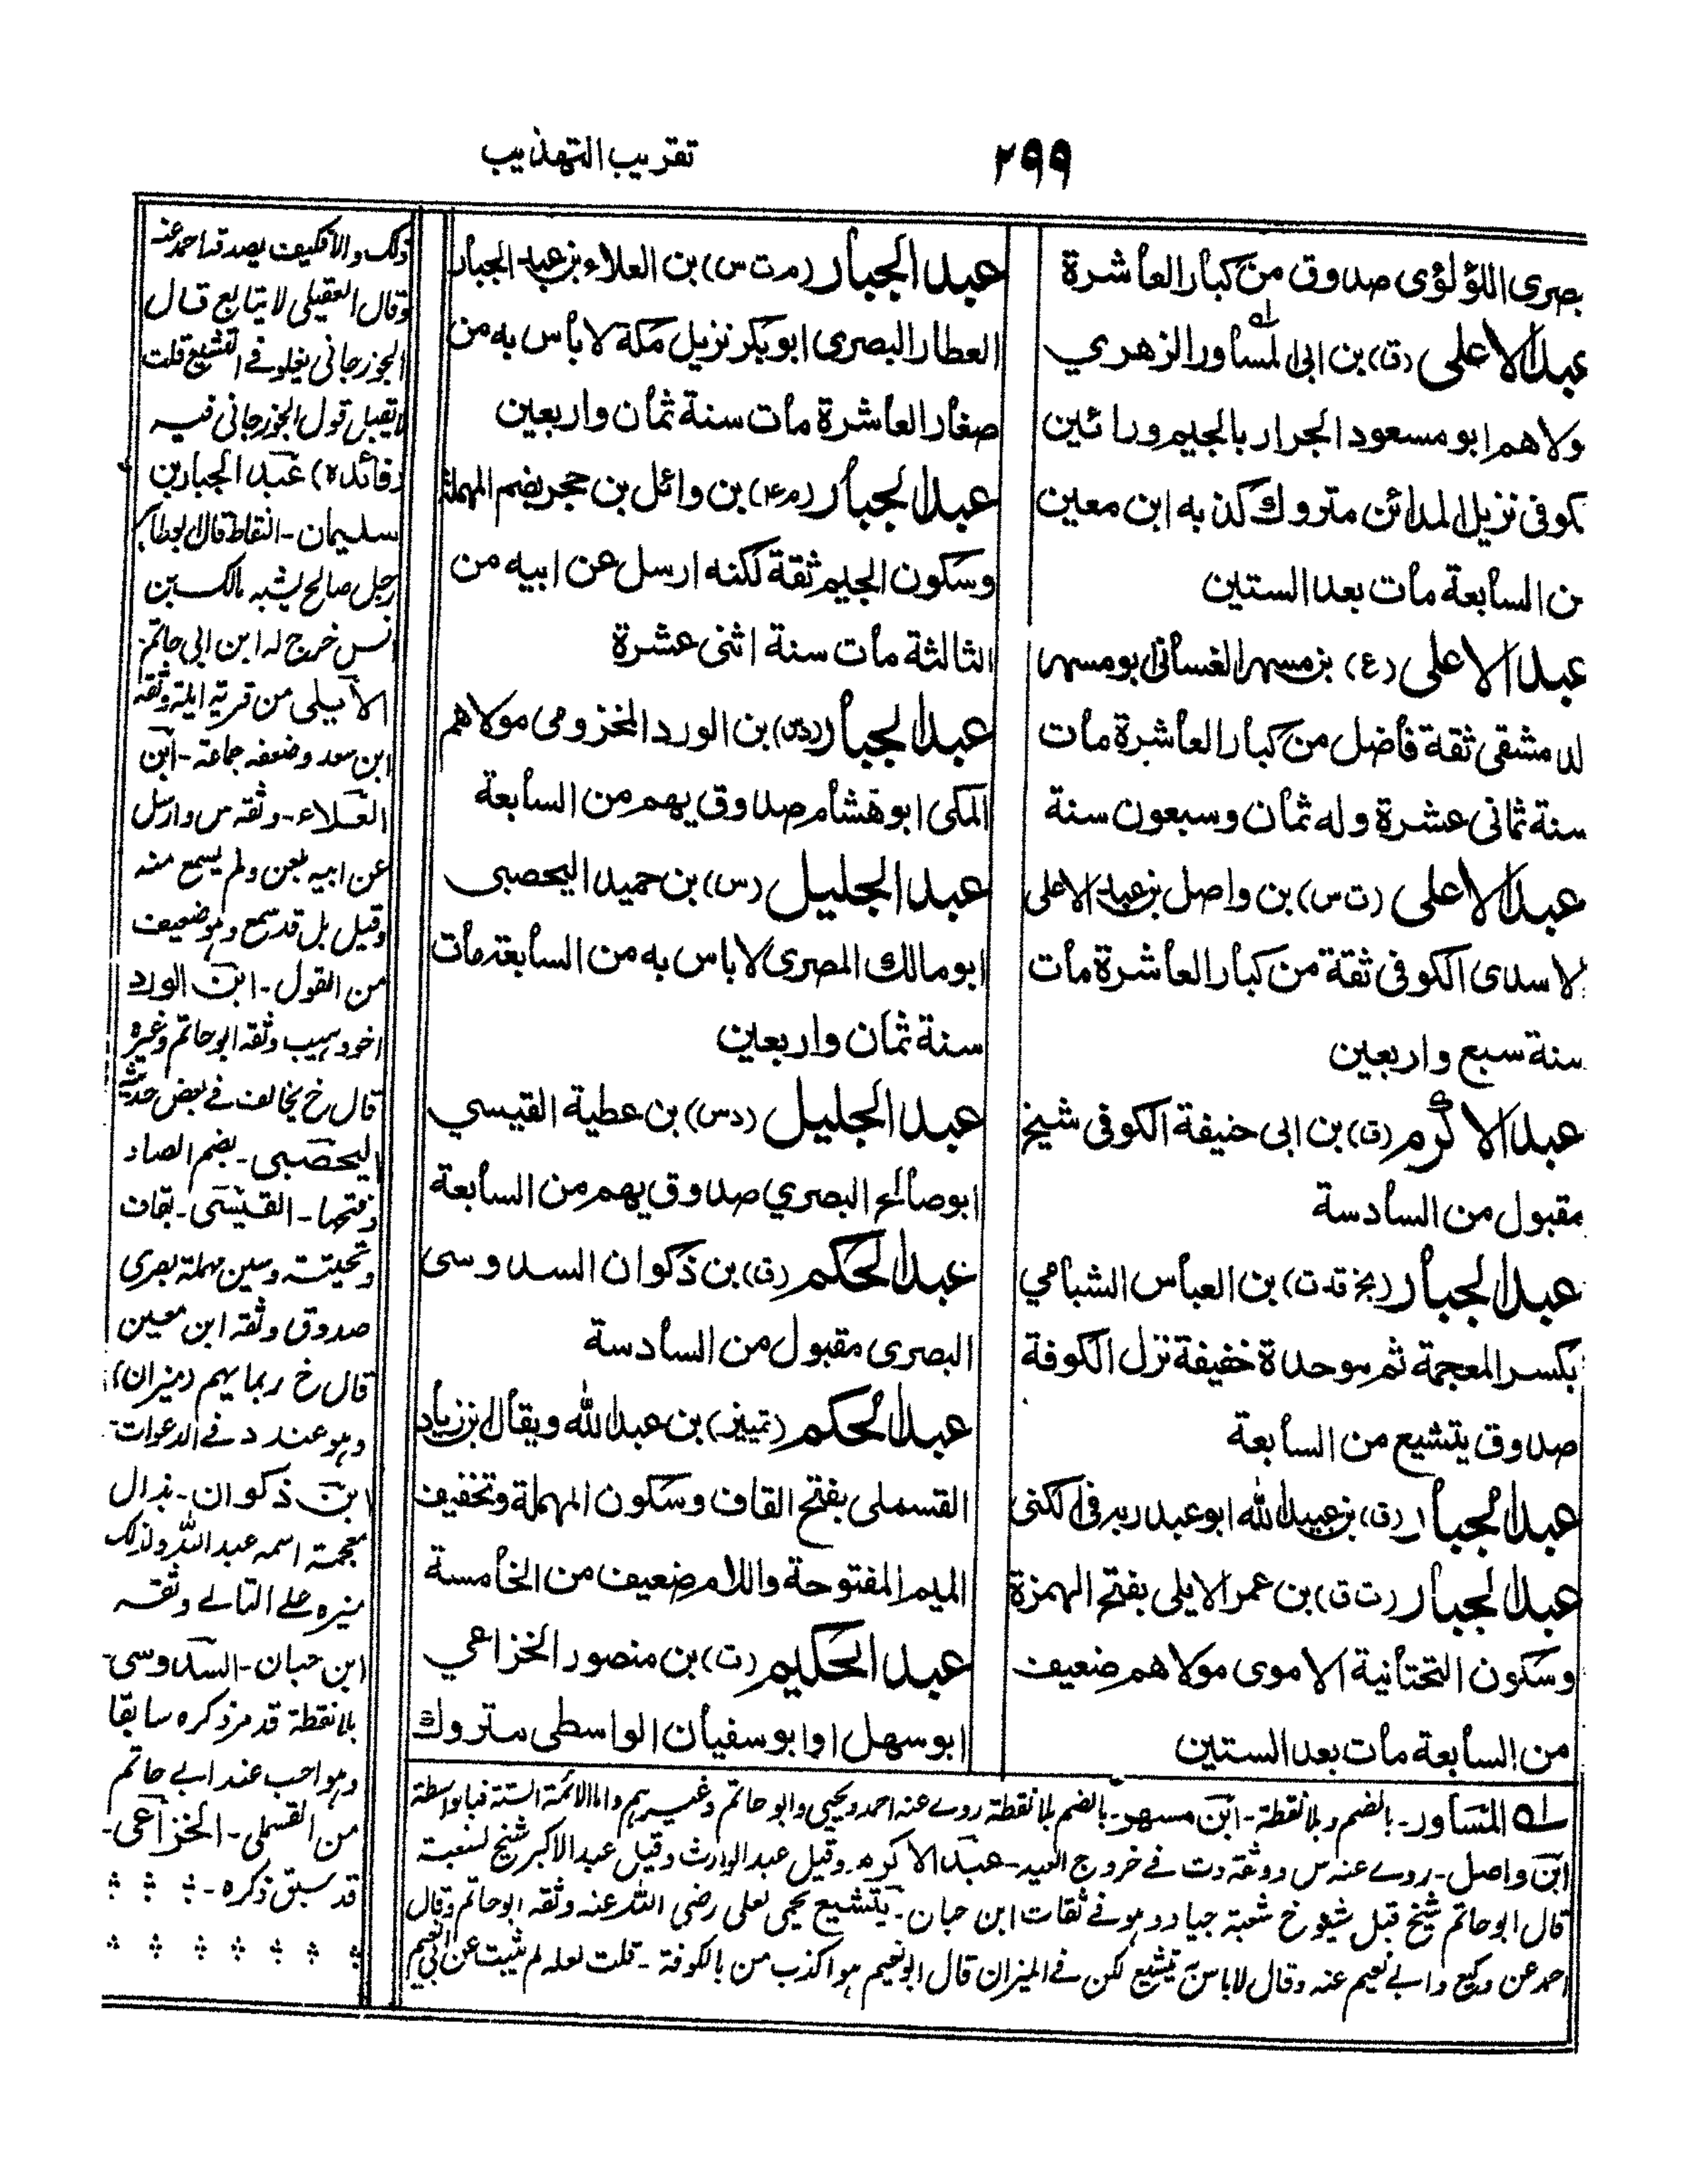 ٢٩٩
تقريب التهذيب
بصرى اللؤلؤى صدوق من كبار العاشرة
عبد الاعلى (ق) بن ابى المساور الزهري
ولاهم ابو مسعود الجرار بالجيم ورائين
كوفى نزيل المدائن متروك كذبه ابن معين
من السابعة مات بعد الستين
عبد الاعلى (ع) بن مسهر الغسانى ابو مسهر
الدمشقى ثقة فاضل من كبار العاشرة مات
سنة ثمانى عشرة وله ثمان وسبعون سنة
عبد الاعلى (ت س) بن واصل بن عبد الاعلى
لاسدى الكوفى ثقة من كبار العاشرة مات
سنة سبع واربعين
عبد الاكرم (ق) بن ابى حنيفة الكوفى شيخ
مقبول من السادسة
عبد الجبار (بخ قد ت) بن العباس الشبامي
بكسر المعجمة ثم موحدة خفيفة نزل الكوفة
صدوق يتشيع من السابعة
عبد الجبار (ق) بن عبيد الله ابو عبد ربه فى الكنى
عبد الجبار (ت ق) بن عمر الايلى بفتح الهمزة
وسكون التحتانية الاموى مولاهم ضعيف
من السابعة مات بعد الستين
عبد الجبار (م ت س) بن العلاء بن عبد الجبار
العطار البصرى ابو بكر نزيل مكة لا بأس به من
صغار العاشرة مات سنة ثمان واربعين
عبد الجبار (م ٤) بن وائل بن حجر بضم المهملة
وسكون الجيم ثقة لكنه ارسل عن ابيه من
الثالثة مات سنة اثنى عشرة
عبد الجبار (د س) بن الورد المخزومى مولاهم
المكى ابو هشام صدوق يهم من السابعة
عبد الجليل (س) بن حميد اليحصبى
ابو مالك المصرى لا باس به من السابعة مات
سنة ثمان واربعين
عبد الجليل (د س) بن عطية القيسي
ابو صالح البصري صدوق يهم من السابعة
عبد الحكم (ق) بن ذكوان السدوسى
البصرى مقبول من السادسة
عبد الحكم (تمييز) بن عبد الله ويقال بن زياد
القسملى بفتح القاف وسكون المهملة وتخفيف
الميم المفتوحة واللام ضعيف من الخامسة
عبد الحكيم (ت) بن منصور الخزاعي
ابو سهل او ابو سفيان الواسطى متروك
ذلك والا فكيف يصدقه احمد عنه
وقال العقيلى لا يتابع قال
الجوزجانى يغلو فى التشيع قلت
لا يقبل قول الجوزجانى فيه
(فائده) عبد الجبار بن
سليمان - قال
رجل صالح يشبه مالك بن
انس خرج له ابن ابى حاتم
الأيلى من قرية ايلة وثقه
ابن سعد وضعفه جماعة - ابن
العلاء - وثقه س وارسل
عن ابيه بعن ولم يسمع منه
وقيل بل قد سمع وهو ضعيف
من القول - ابن الورد
اخو وهيب وثقه ابو حاتم وغيره
قال خ يخالف فى بعض حديثه
اليحصبى - بضم الصاد
وفتحها - القيسى - بقاف
وتحتية وسين مهملة بصرى
صدوق وثقه ابن معين
قال خ ربما يهم (ميزان)
وهو عند د فى الدعوات -
ابن ذكوان - بذال
معجمة اسمه عبد الله ولذلك
ميزه على التالى وثقه
ابن حبان - السدوسى -
بلا نقطة قد مر ذكره سابقا
وهو احب عند ابى حاتم
من القسملى - الخزاعى -
قد سبق ذكره -
له المساور - بالضم وبلا نقطة - ابن مسهر - بالضم بلا نقطة روى عنه احمد ويحيى وابو حاتم وغيرهم واما الائمة الستة فبالواسطة
ابن واصل - روى عنه س ووثقه وت فى خروج العيد - عبد الاكرم - وقيل عبد الوارث وقيل عبد الاكبر شيخ لشعبة
قال ابو حاتم شيخ قيل شيوخ شعبة جياد وهو فى ثقات ابن حبان - يتشيع يحيى لعلى رضى الله عنه وثقه ابو حاتم وقال
احمد عن وكيع وابى نعيم عنه وقال لا باس به يتشيع لكن فى الميزان قال ابو نعيم هو اكذب من بالكوفة - قلت لعله لم يثبت عن ابى نعيم